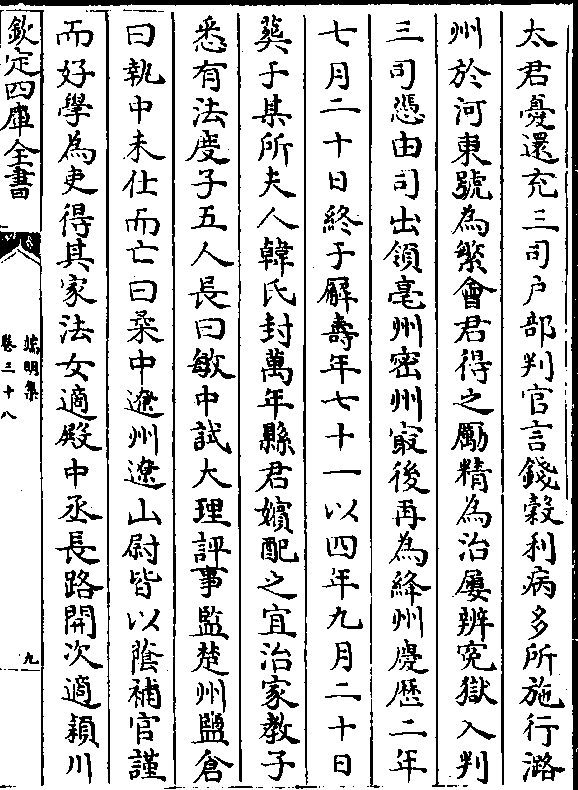 太君憂還充三司户部判官言錢穀利病多所施行潞
州於河東號為繁會君得之勵精為治屢辨寃獄入判
三司憑由司出領亳州密州㝡後再為絳州慶歷二年
七月二十日終于廨壽年七十一以四年九月二十日
葬于某所夫人韓氏封萬年縣君嬪配之宜治家教子
悉有法度子五人長曰敏中試大理評事監楚州鹽倉
曰執中未仕而亡曰桒中遼州遼山尉皆以䕃補官謹
而好學為吏得其家法女適殿中丞長路開次適潁川
欽定四庫全書
端明集
卷三十八
九